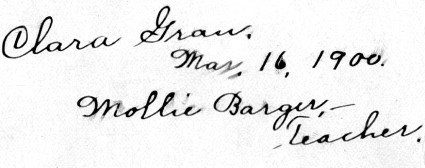 Clara Grau.
Mar. 16, 1900.
Mollie Barger,—
Teacher.